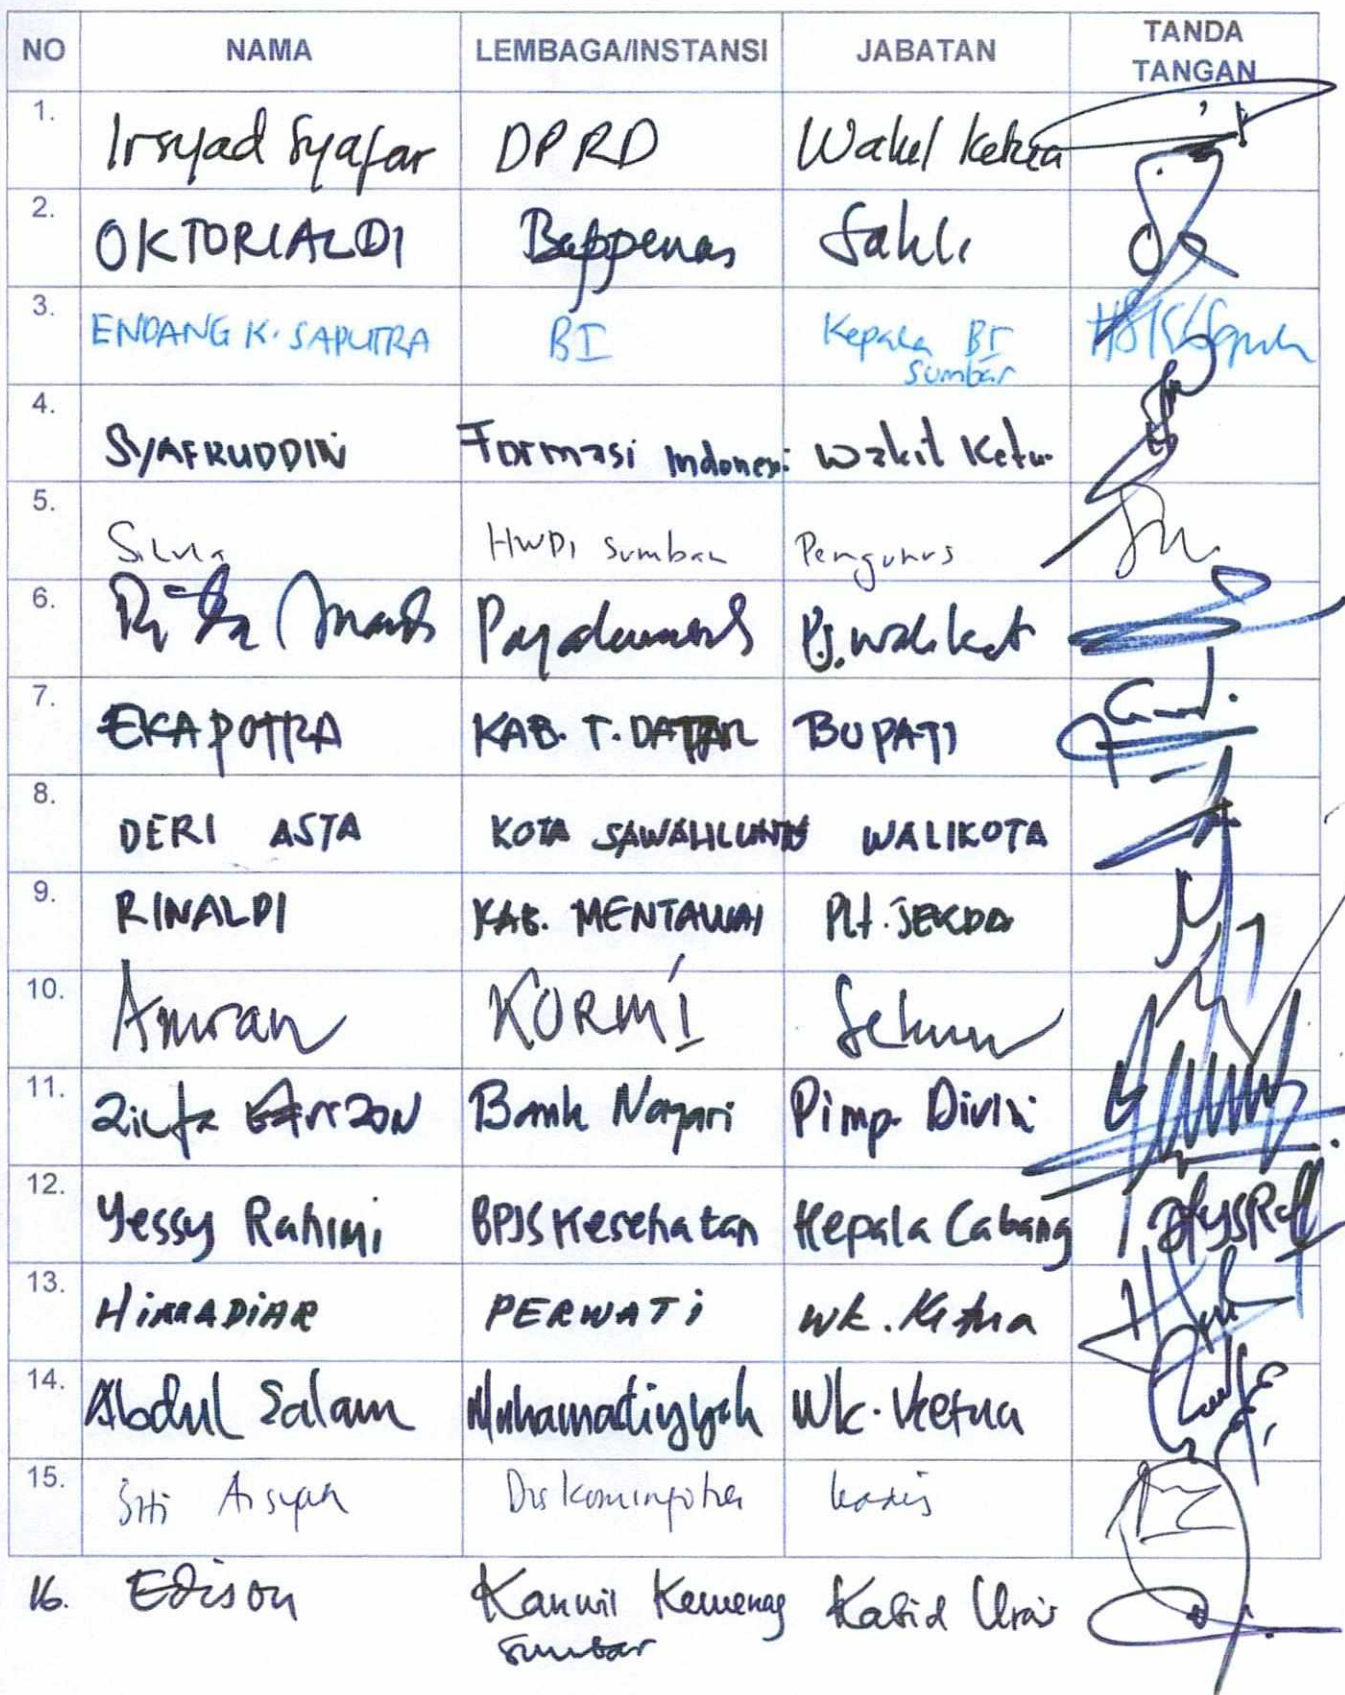 NO NAMA LEMBAGA/INSTANSI JABATAN TANDA TANGAN
1. Irsyad Syafar DPRD Wakil Ketua
2. OKTORIALDI Bappenas Sahli
3. ENDANG K. SAPUTRA BI Kepala BI Sumbar
4. SYAFRUDDIN Formasi Indonesi Wakil Ketu
5. Silvia HWDI Sumbar Pengurus
6. Payakumbuh Pj. Walikot
7. EKA PUTRA KAB. T. DATAR BUPATI
8. DERI ASTA KOTA SAWAHLUNTO WALIKOTA
9. RINALDI KAB. MENTAWAI Plt. SEKDA
10. Amran KORMI Sekum
11. Bank Nagari Pimp. Divisi
12. Yessy Rahimi BPJS Kesehatan Kepala Cabang
13. PERWATI Wk. Ketua
14. Abdul Salam Muhamadiyyah Wk. Ketua
15. Siti Aisyah Diskominfotik Kadis
16. Edison Kanwil Kemenag Kabid Urais
Sumbar